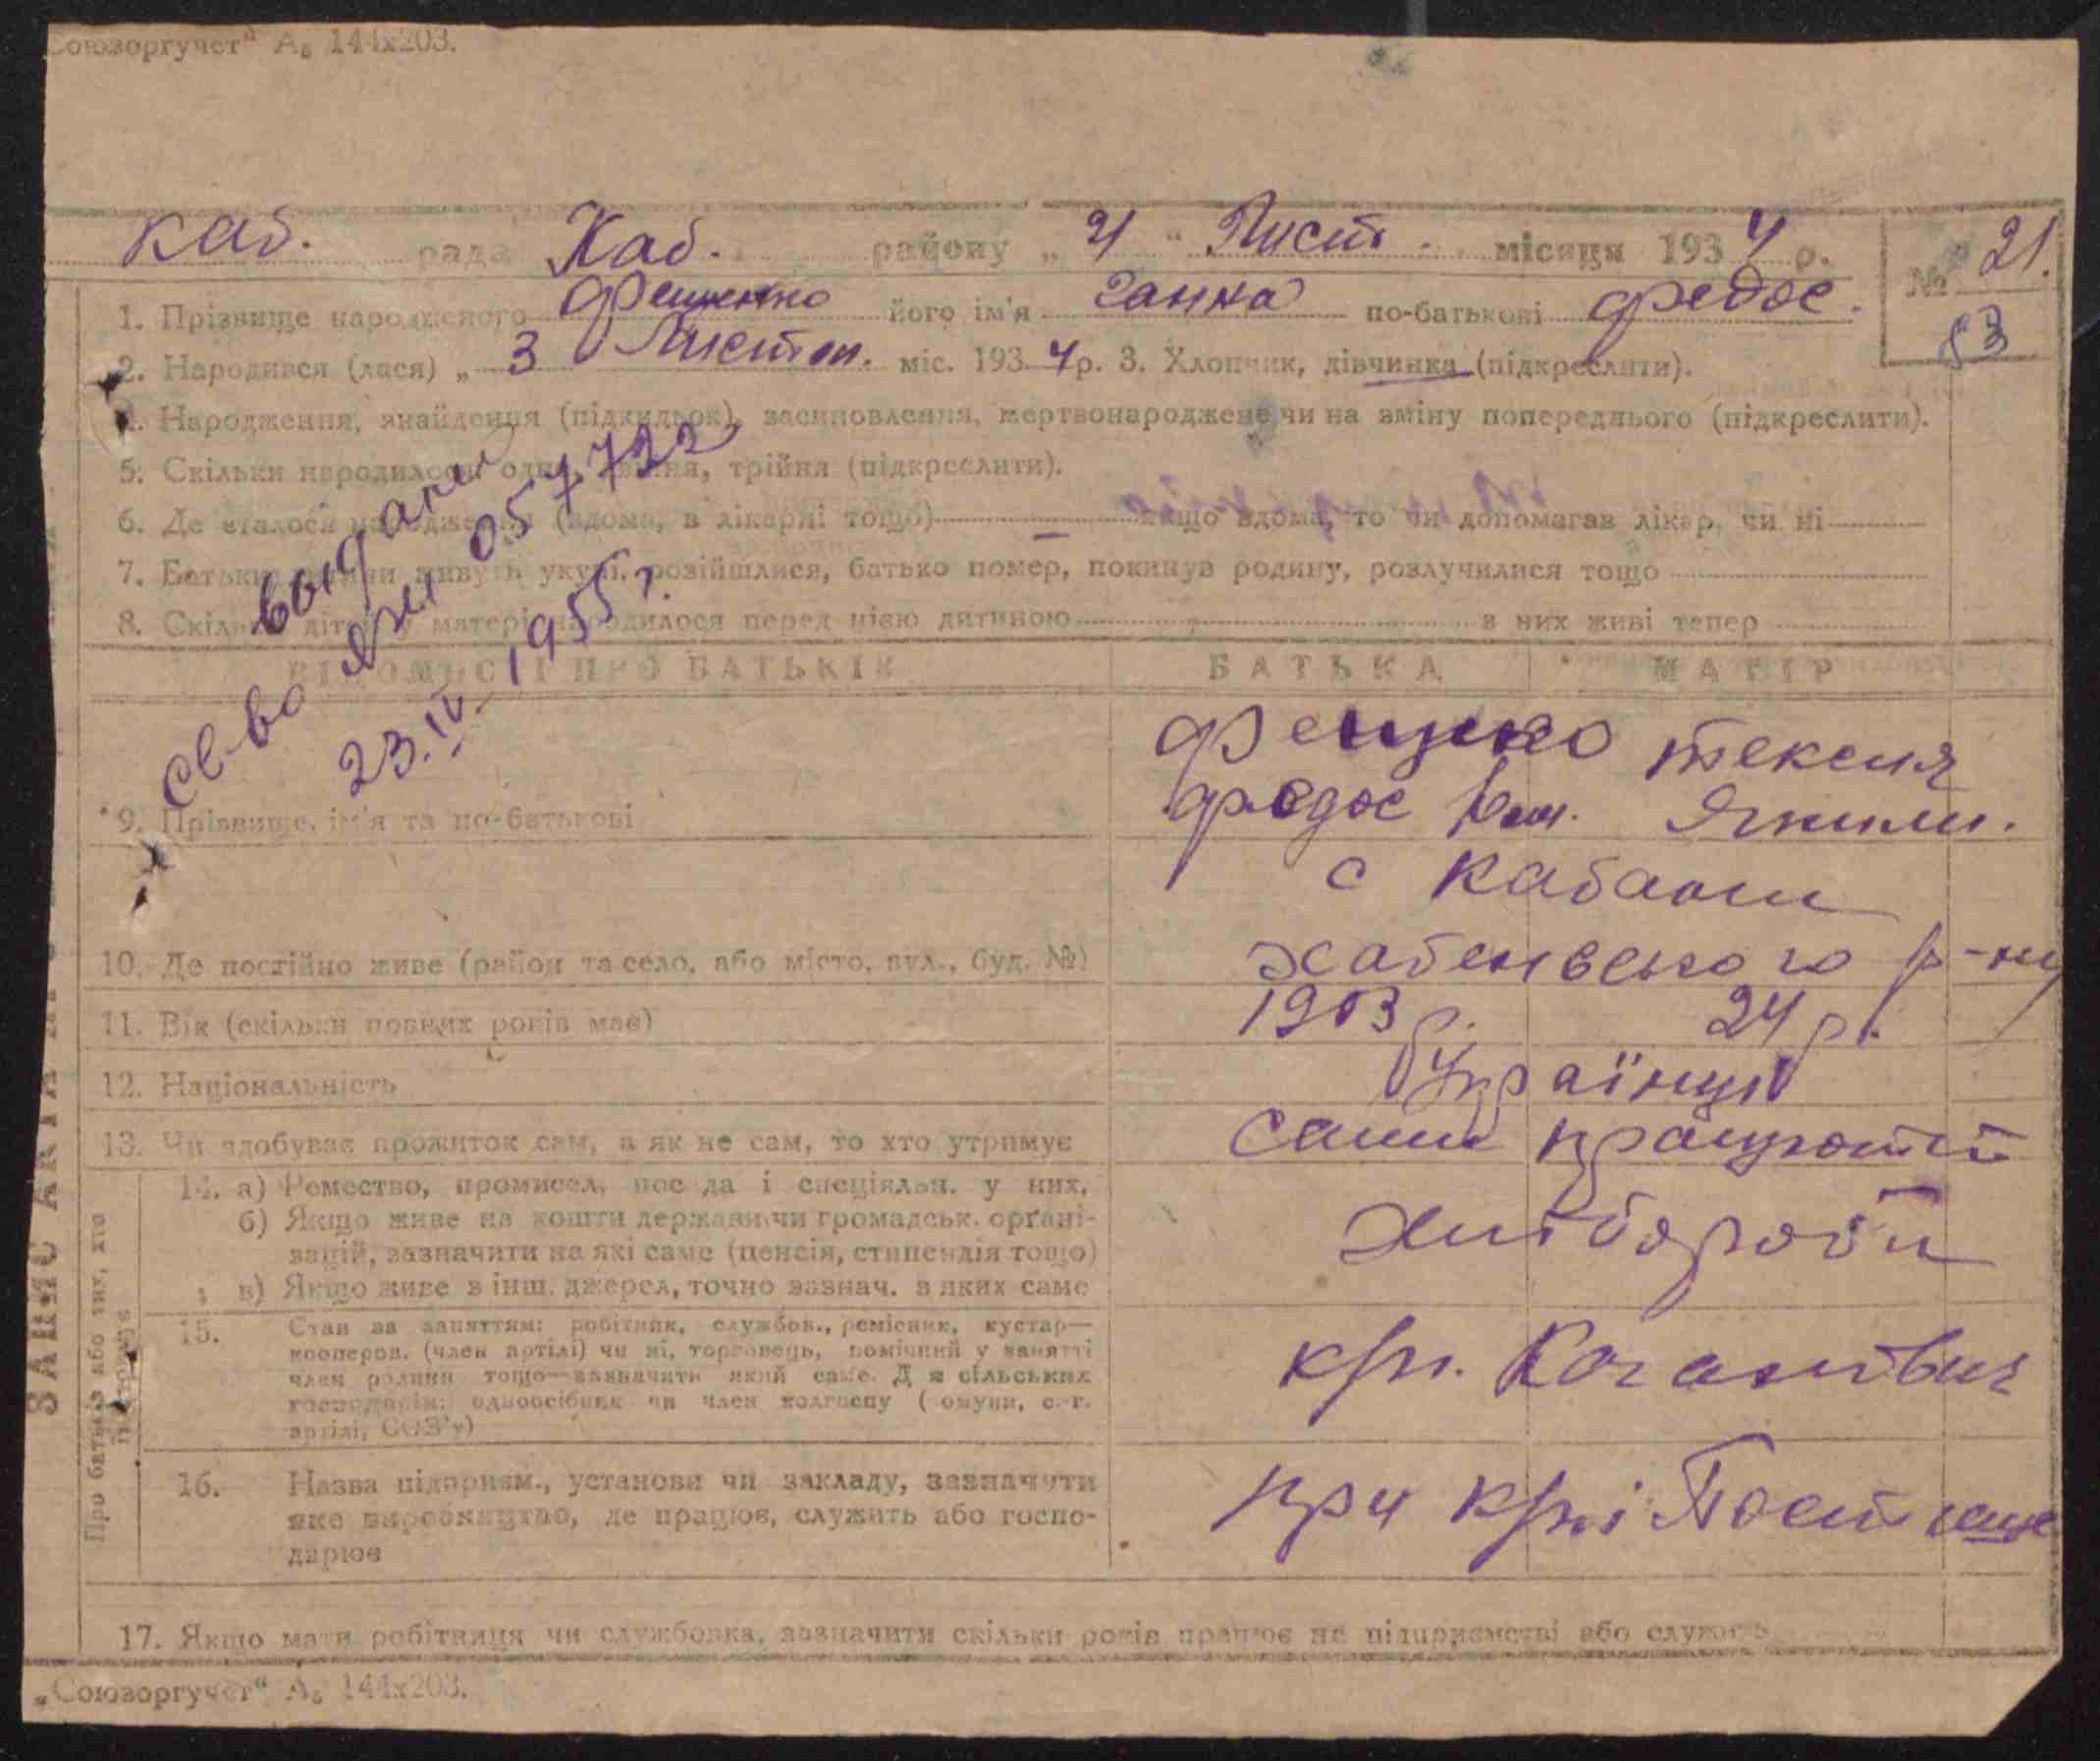 Союзоргучет" А₅ 144х203.
каб. рада Каб. району „ 21 " Лист. місяця 1934 р.
№ 21.
53
1. Прізвище народженого Фещенко його ім'я Ганна по-батькові Федос.
2. Народився (лася) „ 3 Листоп. міс. 1934 р. 3. Хлопчик, дівчинка (підкреслити).
4. Народження, знайдення (підкидьок), засиновлення, мертвонароджене чи на зміну попереднього (підкреслити).
5. Скільки народилося: одна, двійня, трійня (підкреслити).
6. Де сталося народження (вдома, в лікарні тощо) якщо вдома, то чи допомагав лікар, чи ні
7. Батьки дитини живуть укупі, розійшлися, батько помер, покинув родину, розлучилися тощо
8. Скільки дітей у матері народилося перед цією дитиною з них живі тепер
выдано
св-во ЯЯИ 057722
23.IV-1955 г.
ВІДОМОСТІ ПРО БАТЬКІВ БАТЬКА МАТІР
Текля
Федос Якими.
9. Прізвище, ім'я та по-батькові
с Кабани
10. Де постійно живе (район та село, або місто, вул., буд. №) Хабенського р-ну
11. Вік (скільки повних років має) 1903 р. 24 р.
12. Національність Українці
13. Чи здобуває прожиток сам, а як не сам, то хто утримує сами працюють
14. а) Ремество, промисел, посада і спеціяльн. у них,
б) Якщо живе на кошти держави чи громадськ. органі-
зацій, зазначити на які саме (пенсія, стипендія тощо)
в) Якщо живе з інш. джерел, точно зазнач. з яких саме
Хлібороби
15. Стан за заняттям: робітник, службов., ремісник, кустар—
кооперов. (член артілі) чи ні, торговець, помічний у занятті
член родини тощо—зазначити який саме. Для сільських
господарів: одноосібник чи член колгоспу (комуни, с.-г.
артілі, СОЗ'у)
16. Назва підприєм., установи чи закладу, зазначити
яке виробництво, де працює, служить або госпо-
дарює
при
17. Якщо мати робітниця чи службовка, зазначити скільки років працює на підприємстві або служить
ЗАПИС АКТА ПРО
Про батьків або тих, хто
їх утримує
„Союзоргучет" А₅ 144х203.